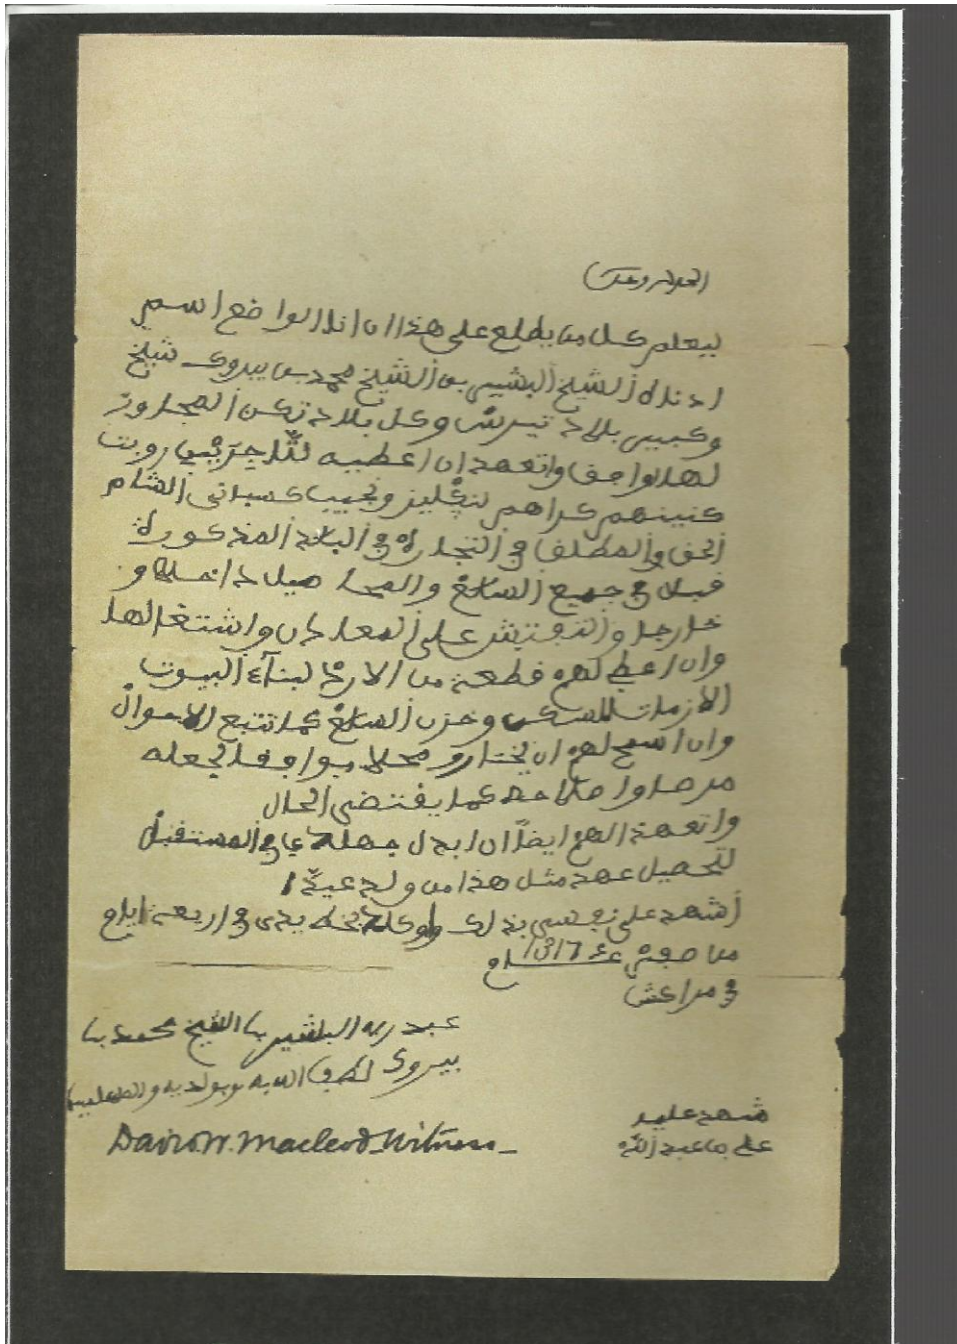 الحمد لله وحده
ليعلم كل من يطلع على هذا ان انا الواضع اسمي
ادناه الشيخ البشير بن الشيخ محمد بن بيروك شيخ
وكبير بلاد وكل بلاد تكن المجاورة
لها اوافق واتعهد ان اعطيه روبت
كنينهم كراهم لنڭليز ونجيب كسباني الشام
الحق والمطلق في التجارة في البلاد المذكورة
قبلا في جميع السلع والمحاصيل داخلا و
خارجا والتفتيش على المعادن واشتغالها
وان اعطي لهم قطعة من الارض لبناء البيوت
الازمات للسكن وخزن السلع كما تتبع الاموال
وان اسمح لهم ان يختارو محلا موافقا لجعله
مرصا وا كما يقتضى الحال
واتعهد الهم ايضا ان ابدل جهدي في المستقبل
لتحصيل عهد مثل هذا من ولد عيدّ
أشهد على نفسى بذلك بخط يدى في اربعة ايام
من صفر عام 1316
في مراكش
عبد ربه البشير بن الشيخ محمد بن
بيروك لطف الله به وبولديه
شهد عليه
علي بن عبد الله
David W. Macleod Witness